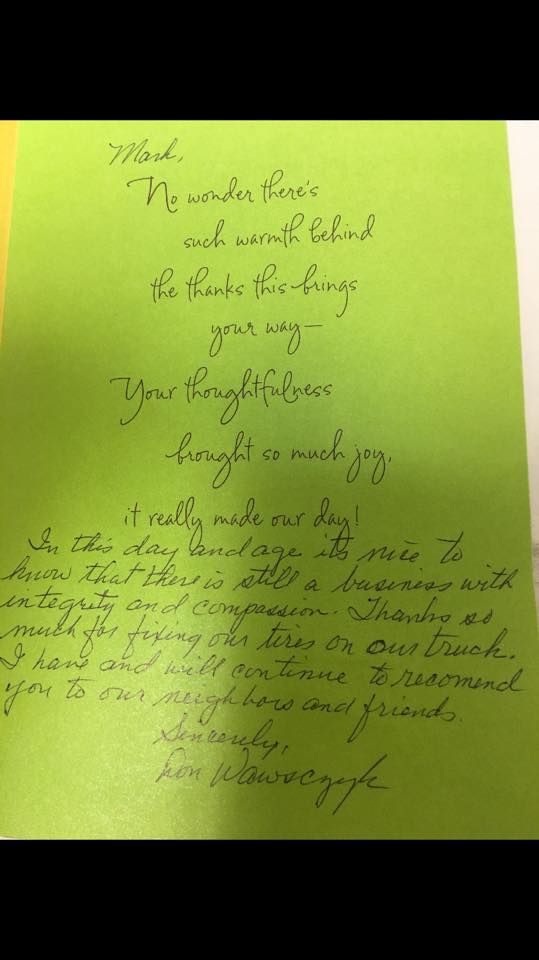 Mark,
No wonder there's
such warmth behind
the thanks this brings
your way—
Your thoughtfulness
brought so much joy,
it really made our day!
In this day and age its nice to
know that there is still a business with
integrity and compassion. Thanks so
much for fixing our tires on our truck.
I have and will continue to recomend
you to our neighbors and friends.
Sincerely,
Don Wawsczyk